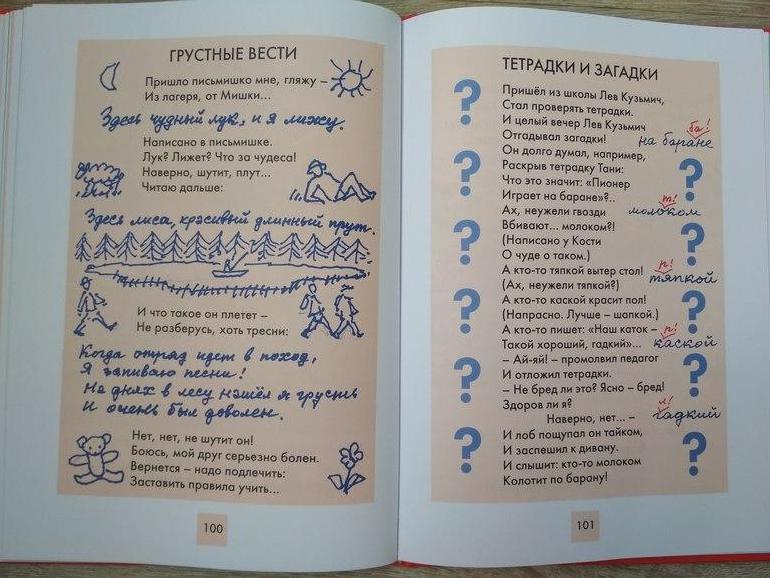 ГРУСТНЫЕ ВЕСТИ
Пришло письмишко мне, гляжу –
Из лагеря, от Мишки...
Здесь чудный лук, и я лижу.
Написано в письмишке.
Лук? Лижет? Что за чудеса!
Наверно, шутит, плут...
Читаю дальше:
Здесь лиса, красивый длинный прут.
И что такое он плетет –
Не разберусь, хоть тресни:
Когда отряд идет в поход,
Я запиваю песни!
На днях в лесу нашёл я грусть
И очень был доволен.
Нет, нет, не шутит он!
Боюсь, мой друг серьезно болен.
Вернется – надо подлечить:
Заставить правила учить...
100
ТЕТРАДКИ И ЗАГАДКИ
Пришёл из школы Лев Кузьмич,
Стал проверять тетрадки.
И целый вечер Лев Кузьмич
Отгадывал загадки!
ба!
на баране
Он долго думал, например,
Раскрыв тетрадку Тани:
Что это значит: «Пионер
Играет на баране»?..
Ах, неужели гвозди
т!
молоком
Вбивают... молоком?!
(Написано у Кости
О чуде о таком.)
А кто-то тяпкой вытер стол!
р!
тяпкой
(Ах, неужели тяпкой?)
А кто-то каской красит пол!
(Напрасно. Лучше – шапкой.)
А кто-то пишет: «Наш каток –
р!
каской
Такой хороший, гадкий»...
– Ай-яй! – промолвил педагог
И отложил тетрадки.
– Не бред ли это? Ясно – бред!
Здоров ли я?
л!
гадкий
Наверно, нет... –
И лоб пощупал он тайком,
И заспешил к дивану.
И слышит: кто-то молоком
Колотит по барану!
101